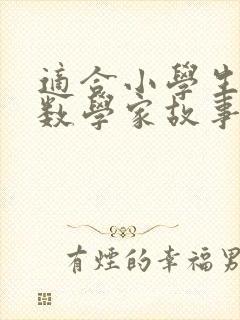 適合小學生
數學家故事
有煙的幸福男